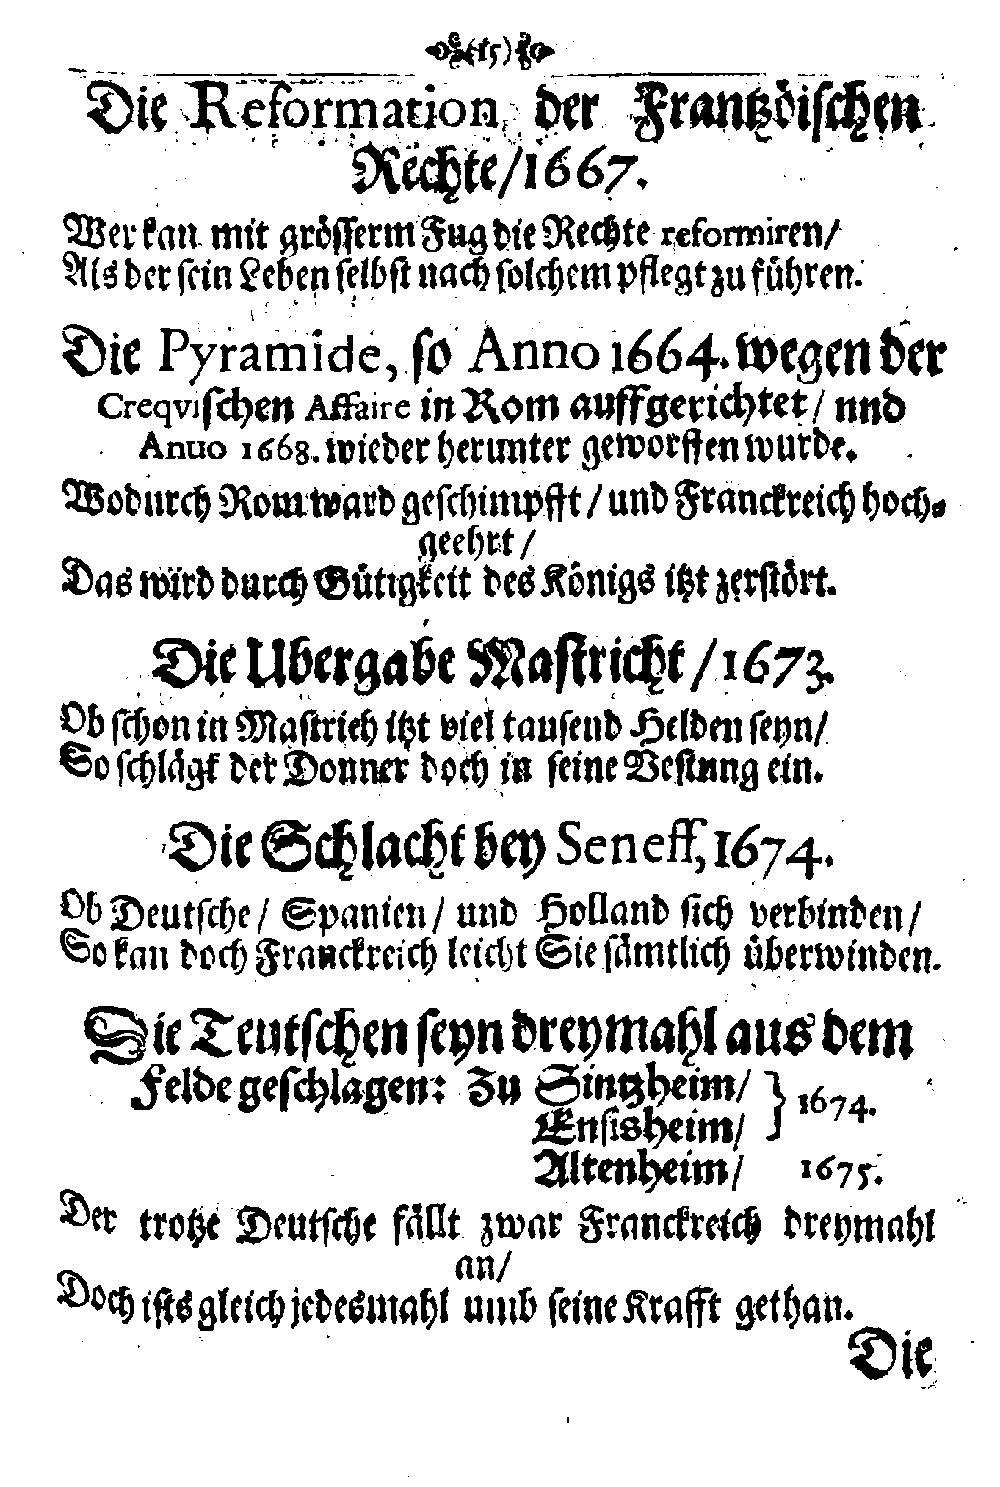 (15)
Die Reformation der Frantzöischen
Rechte/1667.
Wer kan mit grösserm Fug die Rechte reformiren/
Als der sein Leben selbst nach solchem pflegt zu führen.
Die Pyramide, so Anno 1664. wegen der
Creqvischen Affaire in Rom auffgerichtet/ nnd
Anuo 1668. wieder herunter geworffen wurde.
Wodurch Rom ward geschimpfft/ und Franckreich hoch-
geehrt/
Das wird durch Gütigkeit des Königs itzt zerstört.
Die Ubergabe Mastricht/1673.
Ob schon in Mastrich itzt viel tausend Helden seyn/
So schlägt der Donner doch in seine Vestung ein.
Die Schlacht bey Seneff, 1674.
Ob Deutsche/ Spanien/ und Holland sich verbinden/
So kan doch Franckreich leicht Sie sämtlich überwinden.
Die Teutschen seyn dreymahl aus dem
Felde geschlagen: Zu Sintzheim/ } 1674.
Ensisheim/
Altenheim/ 1675.
Der trotze Deutsche fällt zwar Franckreich dreymahl
an/
Doch ists gleich jedesmahl umb seine Krafft gethan.
Die